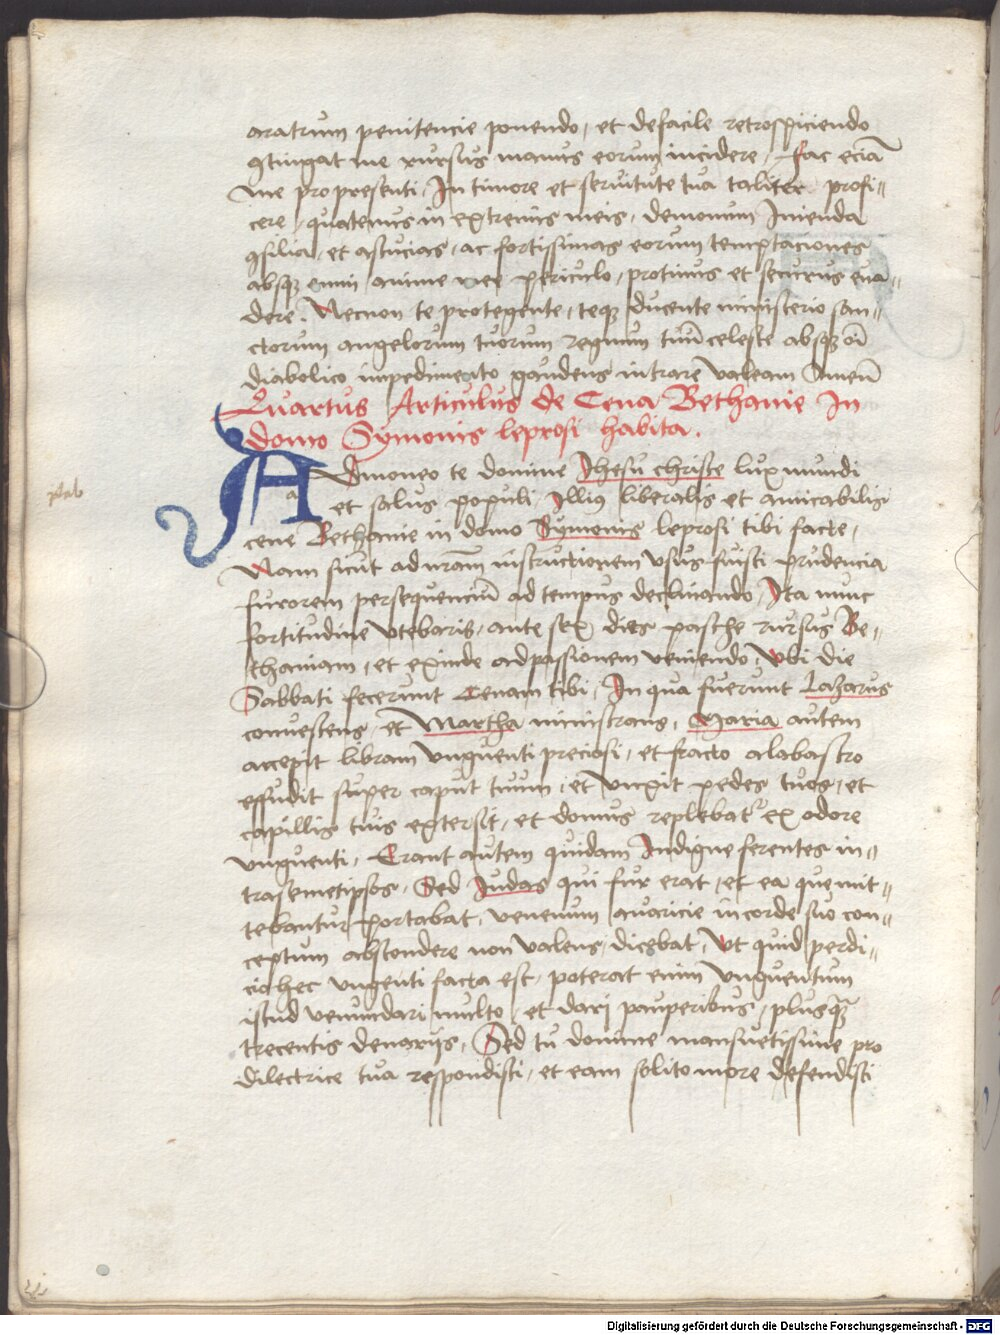 aratrum penitencie ponendo, et defacile retrospiciendo
ꝯtingat me rursus manus eorum incidere, ffac eciā
me pro presenti, In timore et seruitute tua taliter profi-
cere, quatenus in extremis meis, demonum
ꝯsilia, et astucias, ac fortissimas eorum temptaciones
absqꝫ omni anime mee periculo, protinus et securus eua-
dere. Necnon te protegente, teqꝫ ducente ministerio san-
ctorum angelorum tuorum regnum tuū celeste absqꝫ oī
diabolico impedimento gaudens intrare valeam Amen
Quartus Articulus de Cena Bethanie In
domo Symonis leprosi habita.
Admoneo te domine Jhesu christe lux mundi
a
et salus populi Illius liberalis et amicabilis
cene Bethanie in domo Symonis leprosi tibi facte,
Nam sicut ad nrām instructionem vsus fuisti prudencia
furorem persequenciū ad tempus declinando, Ita nunc
fortitudine vtebaris, ante sex dies pasche rursus Be-
thaniam, et exinde ad passionem veniendo, Vbi die
Sabbati fecerunt Cenam tibi, In qua fuerunt Lazarus
conuescens, et Martha ministrans, Maria autem
accepit libram vnguenti preciosi, et fracto alabastro
effudit super caput tuum, et vnxit pedes tuos, et
capillis suis extersit, et domus replebatʳ ex odore
vnguenti, Erant autem quidam Indigne ferentes in-
tra semetipsos, Sed Judas qui fur erat, et ea que mit-
tebantur portabat, venenum auaricie in corde suo con-
ceptum abscondere non valens, dicebat, Vt quid perdi-
cio hec vngenti facta est, poterat enim vnguentum
istud venundari multo, et dari pauperibus, plusqꝫ
trecentis denarijs, Sed tu domine mansuetissime pro
dilectrice tua respondisti, et eam solito more defendisti
Digitalisierung gefördert durch die Deutsche Forschungsgemeinschaft - DFG